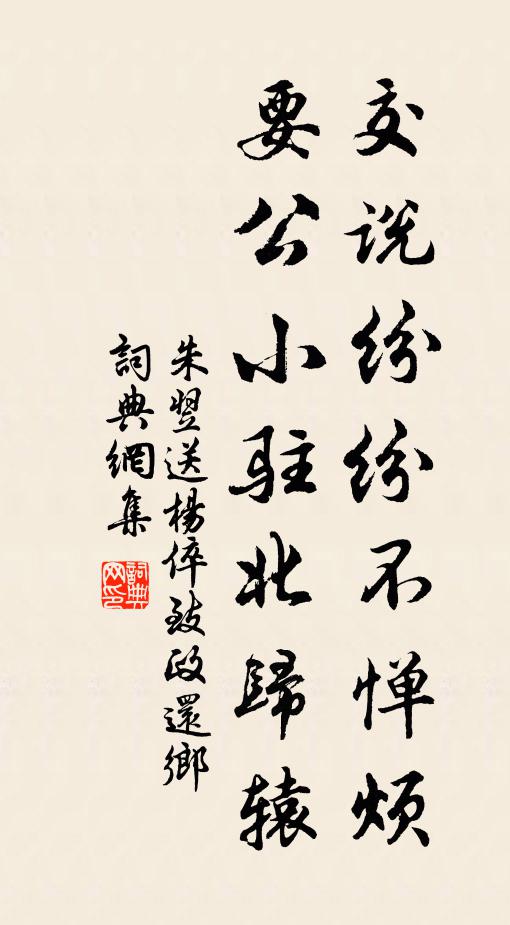 交说纷纷不惮烦
要公小驻北歸辕
朱翌送楊倅致政還鄉
詞典網集
詞典网印